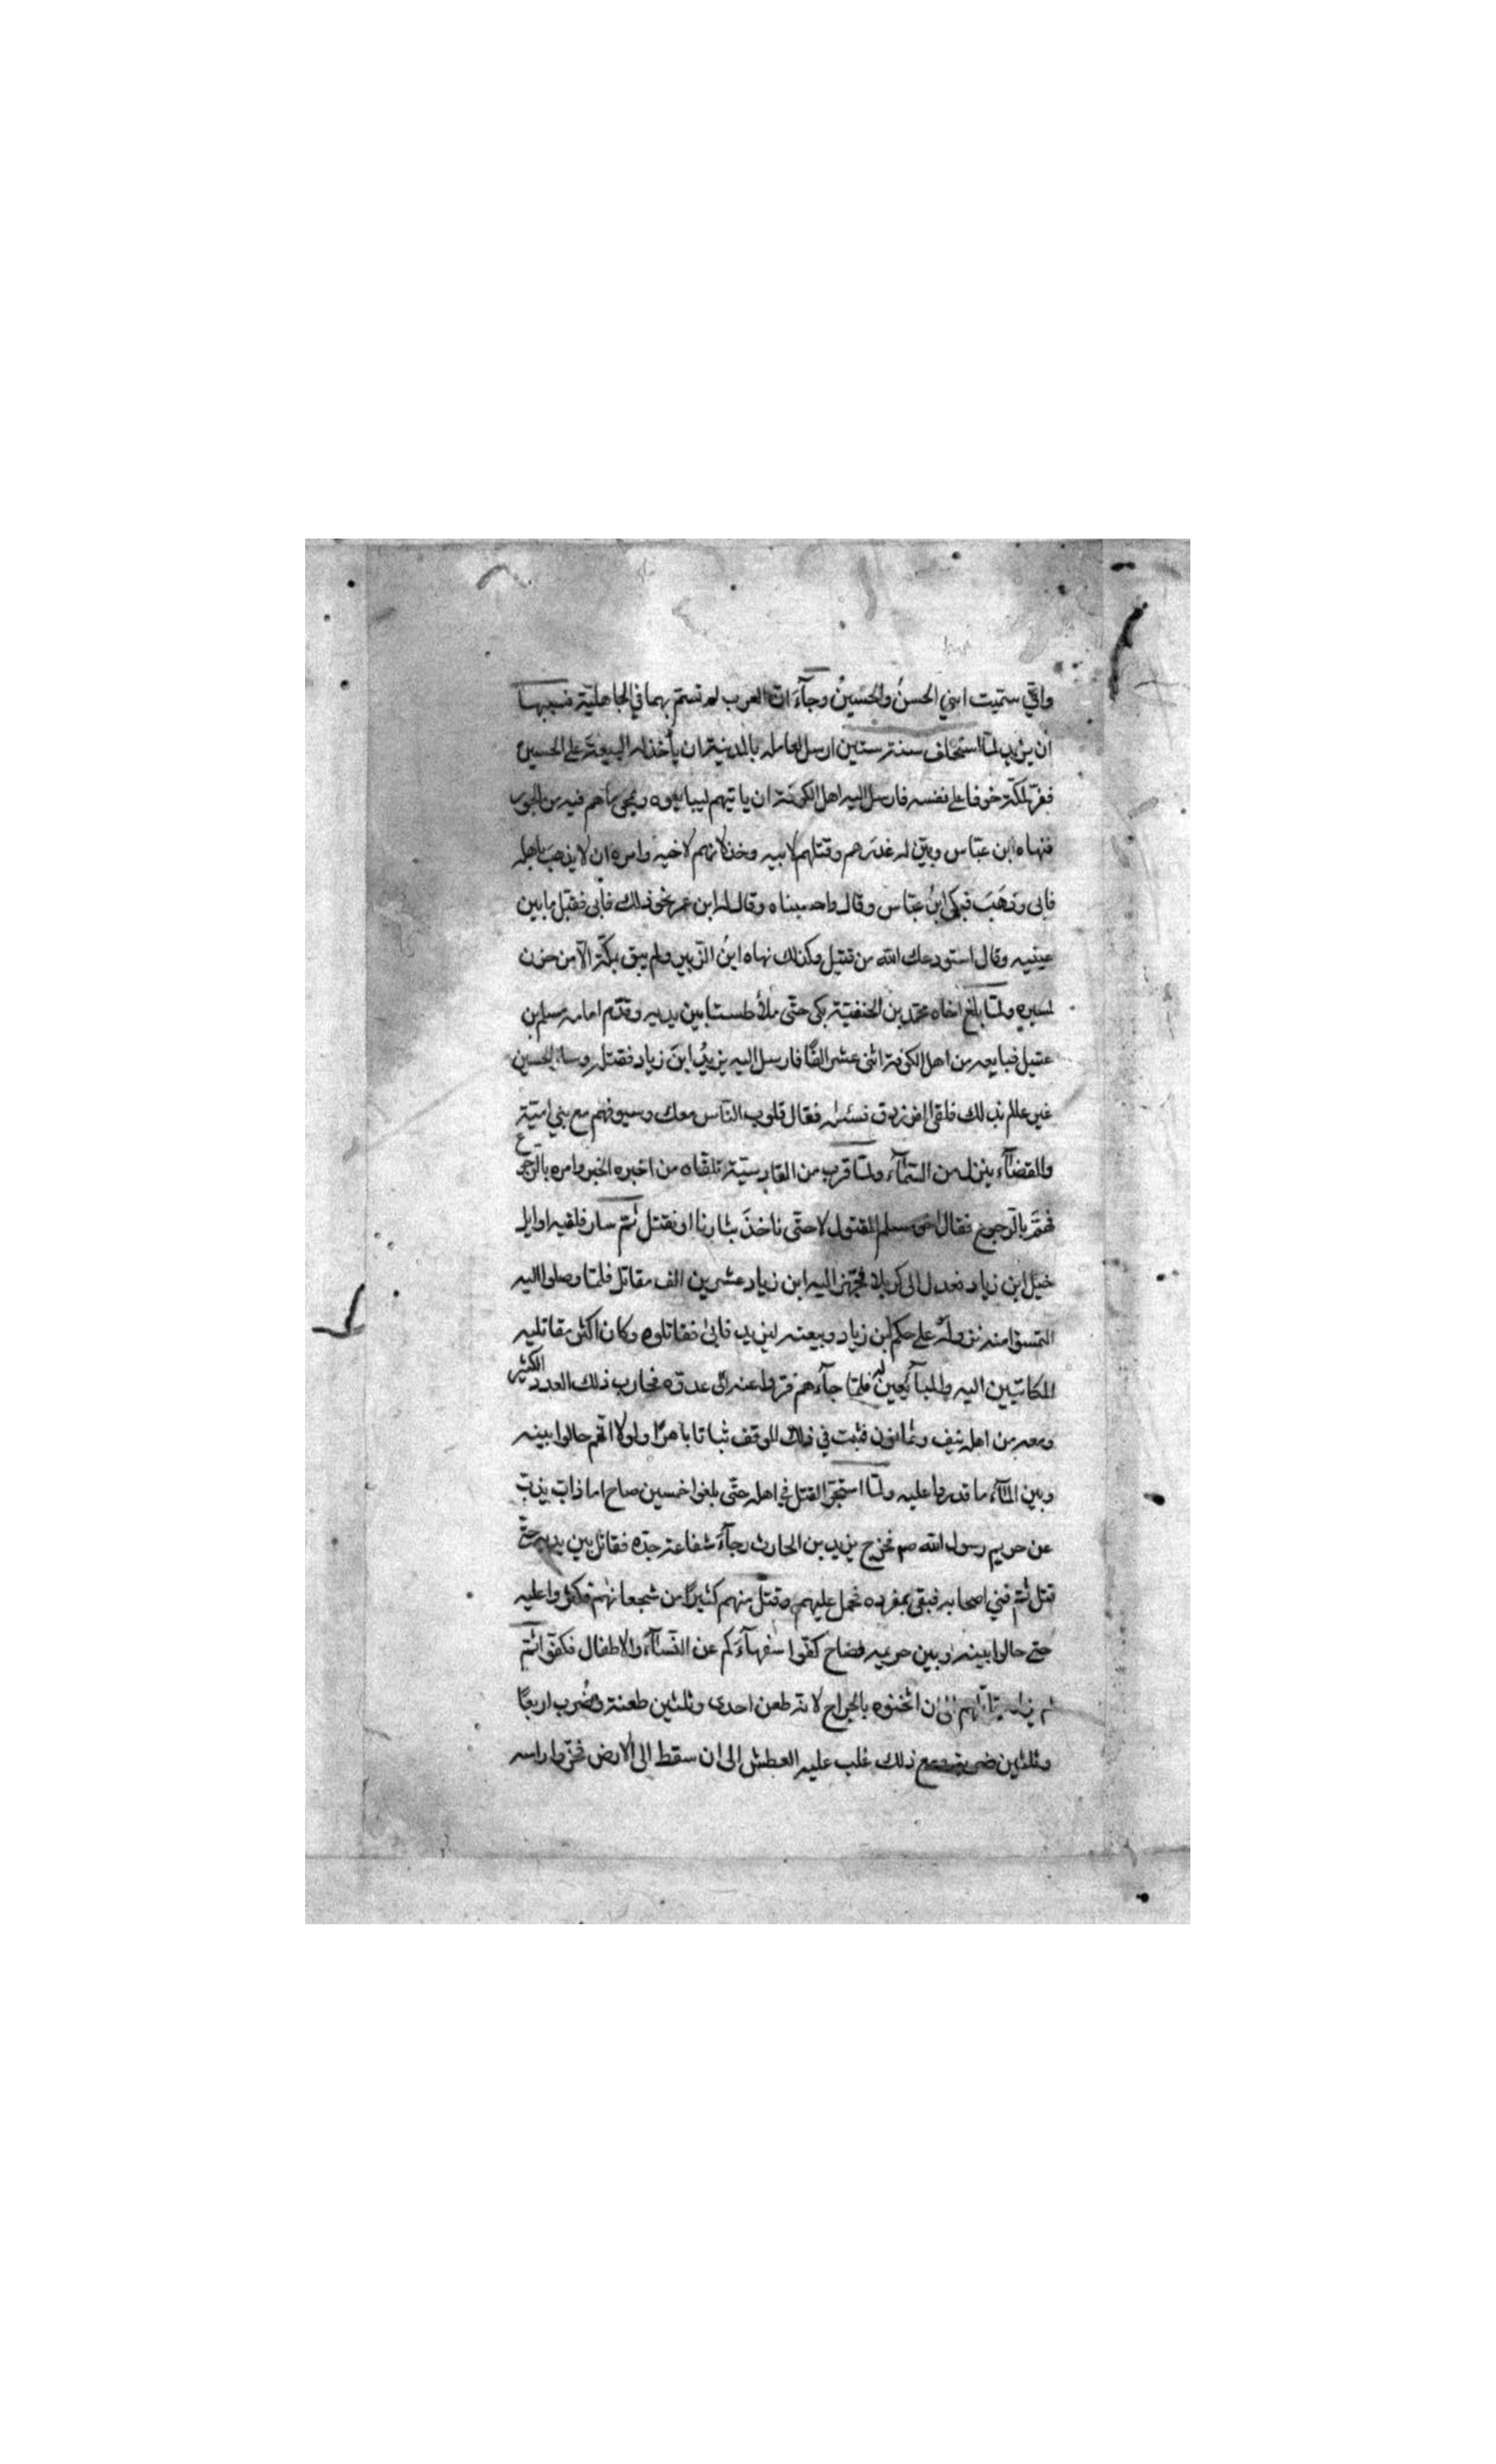 واني سميت ابني الحسنُ والحسينُ وجآءَ انّ العرب لم تسمّ بهما في الجاهليّة
ان يزيد لمّا استخلف سنة ستين ارسل لعامله بالمدينة ان يأخذ له البيعة على الحسين
ففرّ لمكّة خوفا على نفسه فارسل اليه اهل الكوفة ان ياتيهم ليبايعوه ويمحي ماهم فيه من الجور
فنهاه ابن عبّاس وبيّن له غدرهم وقتلهم لابيه وخذلانهم لاخيه وامره ان لا يذهب باهله
فابى وذهَبَ فبكى ابنُ عبّاس وقال واحسيناه وقال له ابن عمر نحو ذلك فأبى فقبّل ما بين
عينيه وقال استودعك الله من قتيل وكذلك نهاه ابنُ الزّبير ولم يبق بمكّة الّا من حزن
لمسيره ولمّا بلغ اخاه محمّد بن الحنفيّة بكى حتّى ملأ طستا بين يديه وقدّم امامه مسلم بن
عقيل فبايعه من اهل الكوفة اثنى عشر الفًا فارسل اليه يزيدُ ابنَ زياد فقتله وسار الحسين
غير عالم بذلك فلقى الفرزدق فسئله فقال قلوب النّاس معك وسيوفهم مع بني اميّة
والقضآء ينزل من السّمآء ولمّا قرب من القادسيّة تلقاه من اخبره الخبر وامره بالرّجوع
فهمّ بالرّجوع فقال اخو مسلم المقتول لا حتّى ناخذ بثارنا او نقتل ثمّ سار فلقيه اوايل
خيل ابن زياد فعدل الى كربلا فجهّز اليه ابن زياد عشرين الف مقاتل فلمّا وصلوا اليه
التمسوا منه نزوله على حكم ابن زياد وبيعته ليزيد فابى فقاتلوه وكان اكثر مقاتليه
المكاتبين اليه والمبآيعين له فلمّا جآءهم فرّوا عنه الى عدوّه فحارب ذلك العدد الكثير
ومعه من اهله نيف وثمانون فثبت في ذلك الموقف ثباتا باهرًا ولولا انّهم حالوا بينه
وبين المآء ما قدروا عليه ولمّا استحرّ القتل في اهله حتّى بلغوا خمسين صاح اما ذابّ يذبّ
عن حريم رسول الله صم فخرج يزيد بن الحارث رجآءَ شفاعة جدّه فقاتل بين يديه حتّى
قتل ثمّ فني اصحابه فبقى بمفرده فحمل عليهم وقتل منهم كثيرًا من شجعانهم فكثروا عليه
حتى حالوا بينه وبين حريمه فصاح كفّوا سفهآءَكم عن النّسآء والاطفال فكفّوا ثمّ
لم يزل يقاتلهم الى ان اثخنوه بالجراح لانه طعن احدى وثلثين طعنة وضُرب اربعًا
وثلثين ضربة ومع ذلك غلب عليه العطش الى ان سقط الى الارض فحزّوا راسه